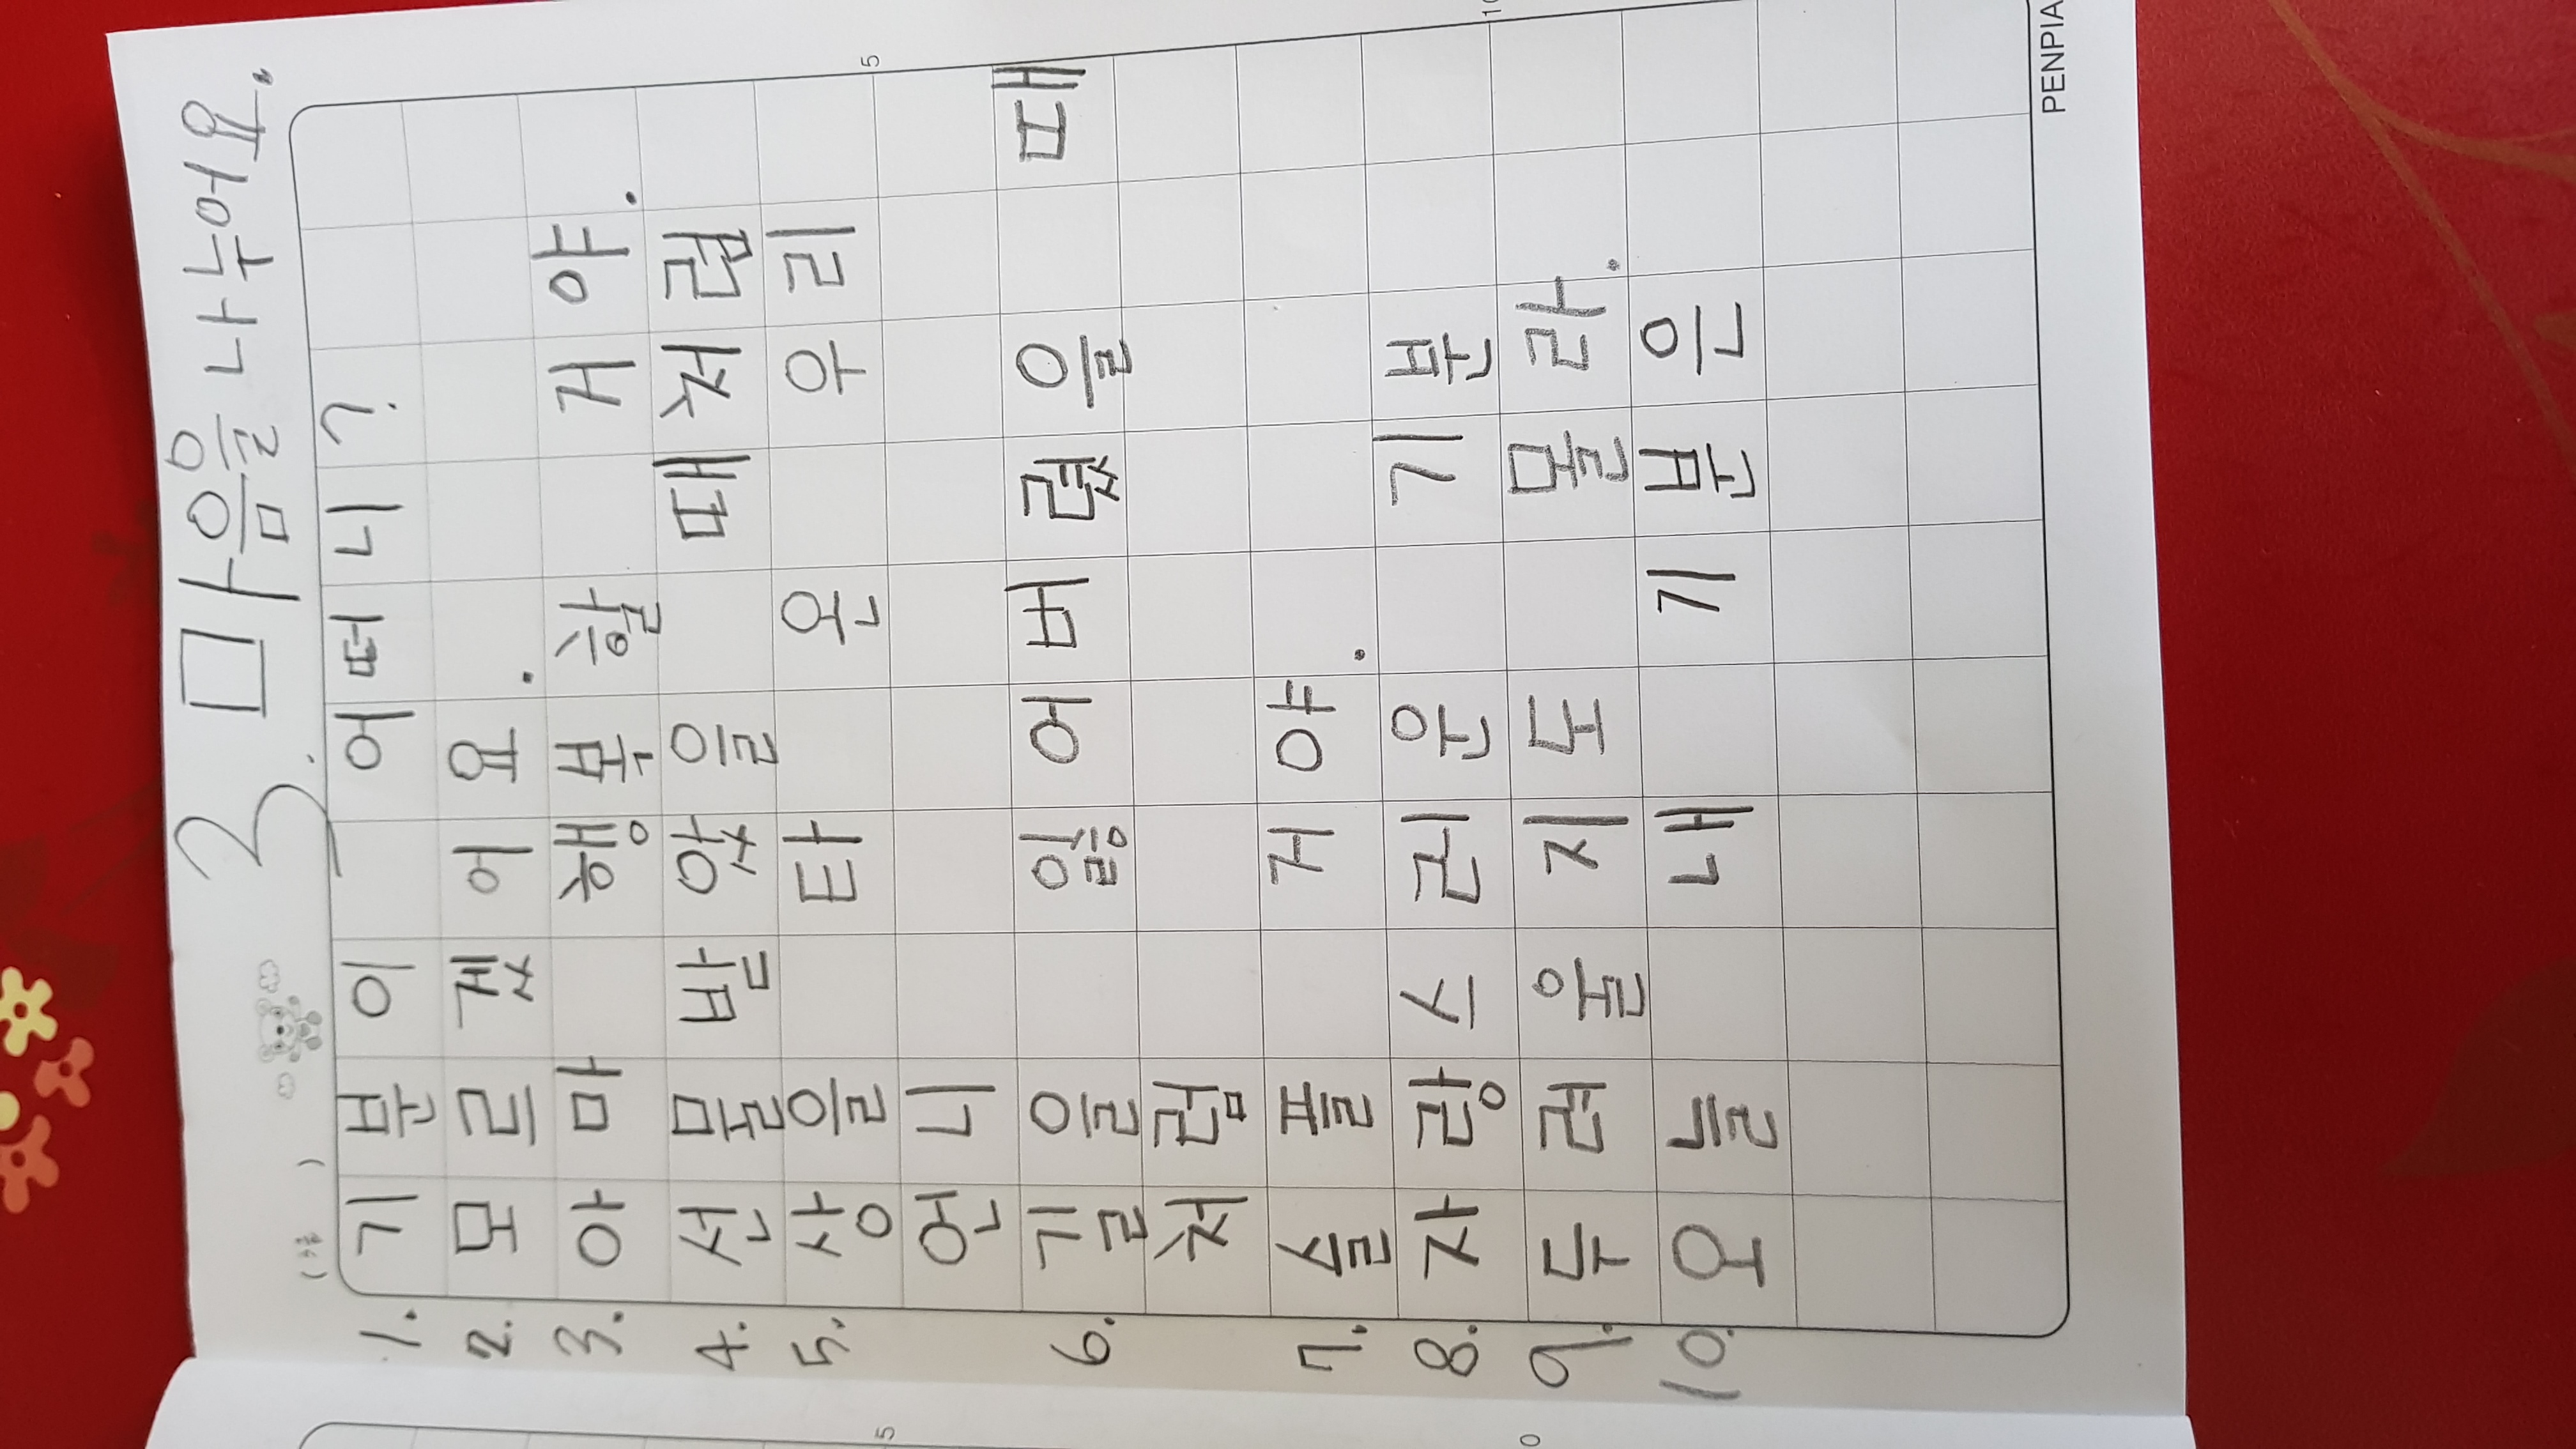 3. 마음을 나누어요.
( 3급 )
1. 기분이 어떠니?
2. 모르겠어요.
3. 아마 행복할 거야.
4. 선물받았을 때처럼
5. 상을 타 온 우리
5
5
언니
6. 길을 잃어버렸을 때
처럼
7. 슬플 거야.
8. 자랑스러운 기분
10
9. 두려울지도 몰라.
0
10. 오늘 내 기분은
PENPIA